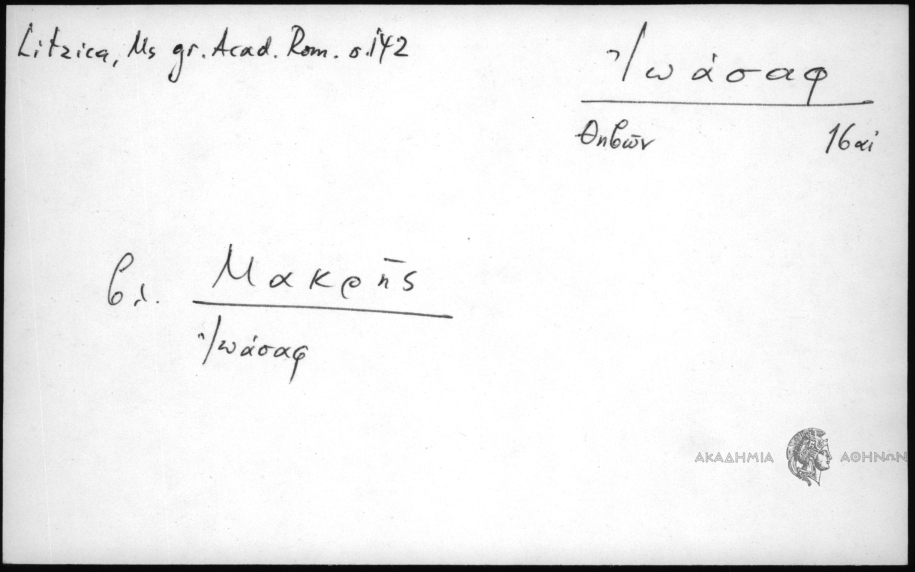 Litzica, Ms gr. Acad. Rom. σ.142
Ἰωάσαφ
Θηβῶν 16 αἰ
βλ. Μακρῆς
Ἰωάσαφ
ΑΚΑΔΗΜΙΑ ΑΘΗΝΩΝ